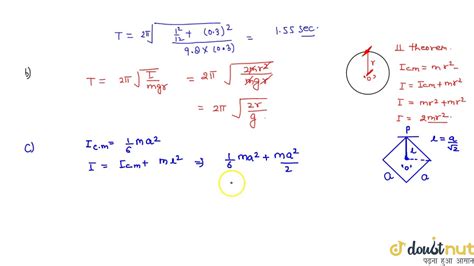 T = 2π √(1²/12 + (0.3)²) / (9.8 × (0.3)) = 1.55 sec.
b) T = 2π √(I/mgr) = 2π √(2mr²/mgr)
= 2π √(2r/g)
r
'O'
⊥ theorem.
Icm = mr²
I = Icm + mr²
I = mr² + mr²
I = 2mr²
c) Ic.m = 1/6 ma²
I = Icm + ml² ⇒ 1/6 ma² + ma²/2
P
l
'O'
a
a
l = a/√2
doubtnut
पढ़ना हुआ आसान